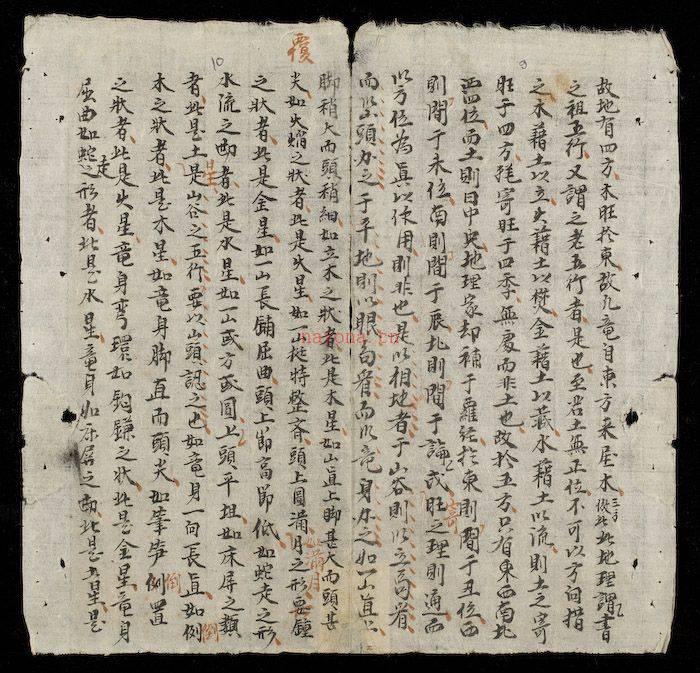 故地有四方木旺於東故凡竜自東方来屋木三方倣此此地理謂書
之祖五行又謂之老五行者是也至若土無正位不可以方向措
之木藉土以立火藉土以熒金藉土以藏水藉土以流則土之寄
旺于四方寄旺于四季無處而非土也故於五方只有東西南北
四位而土則曰中央地理家却補于羅経於東則間于丑位西
則間于未位南則間于辰北則間于論戌旺之理則通而
以方位為真以使用則非也是以相地者于山谷則以立高省
而以頭分之于平地則以眼而以竜身分之如一山直上
脚稍大而頭稍細如立木之狀者此是木星如山直上脚甚大而頭甚
尖如火焰之狀者此是火星如一山挺特整斉頭上圓滿月之形覆鍾
之狀者此是金星如一山長鋪屈曲頭上節高節低如蛇走之形
水流之者此是水星如一山或方或圓上頭平坦如床屏之類
者此是土星是山谷之五行要以山頭認之也如竜身一向長直如倒
木之狀者此是木星如竜身脚直而頭尖如筆笋倒置
之狀者此是火星竜身彎環如鈎鎌之狀此是金星竜身
屈曲如蛇走之形者此是水星竜身如床屏之此是土星是
覆
如滿月
倒
倒
星
9
10